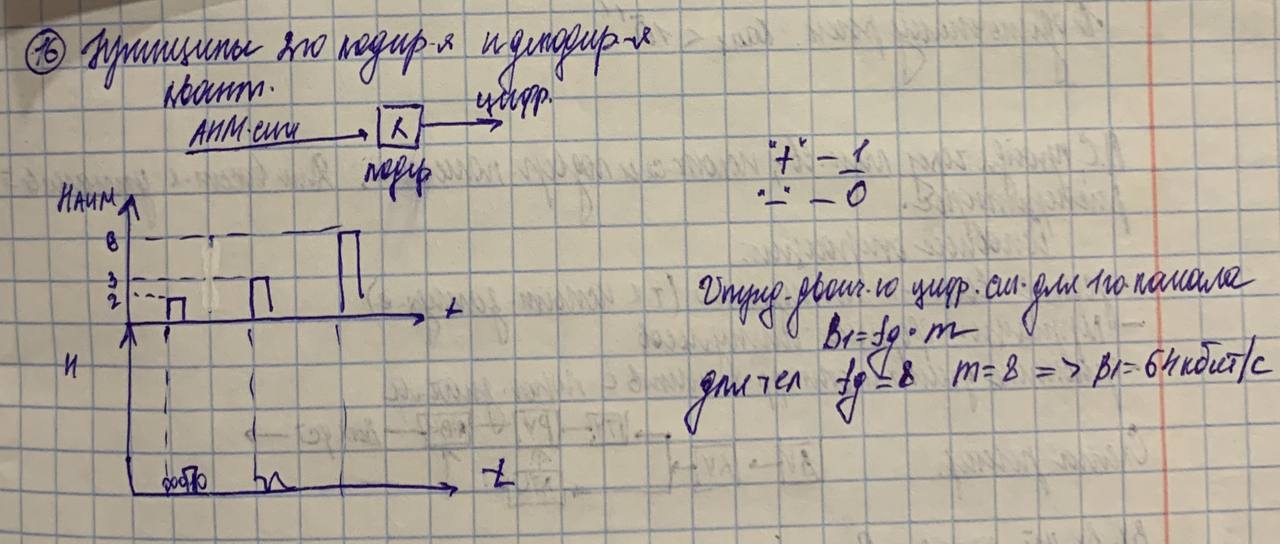 16 Принципы 2го кодир-я и декодир-я
квант.
АИМ-сигн
К
цифр.
кодир.
"+" – 1
"–" – 0
НАИМ
8
3
2
t
И
t
Vперед. двоич-го цифр. сиг. для 1го канала
B1=fg·m
для тел fg=8 m=8 => B1=64кбит/с